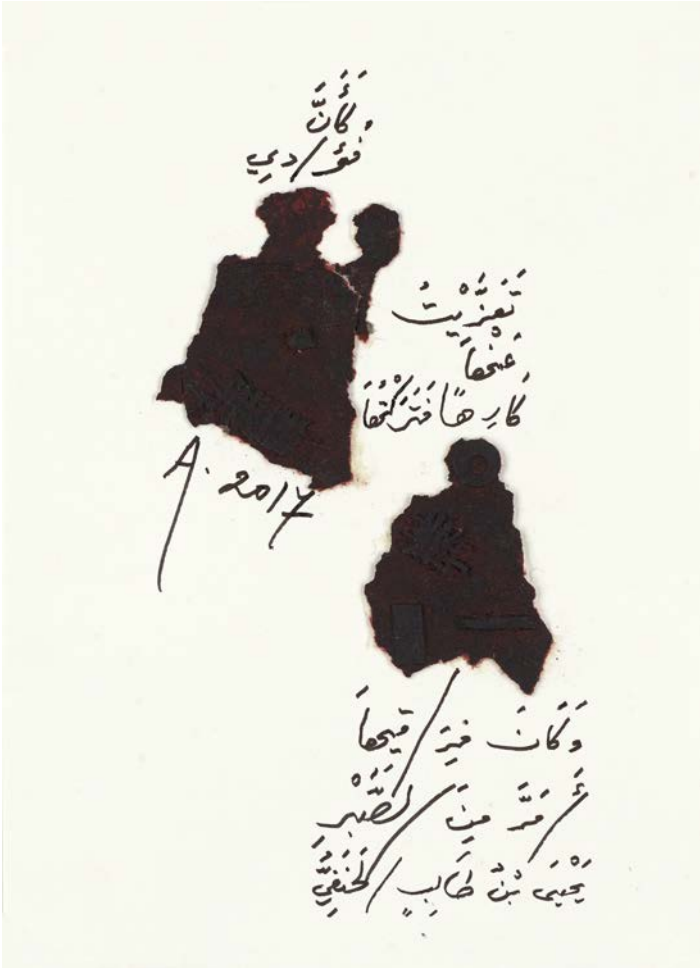 كَأَنَّ
فُؤَادِي
تَعَزَّيْتُ
عَنْهَا
كَارِهًا فَتَرَكْتُهَا
A. 2017
وَكَانَ فِرَاقِيهَا
أَمَرَّ مِنَ الصَّبْرِ
يَحْيَى بْنُ طَالِبٍ الحَنَفِيُّ